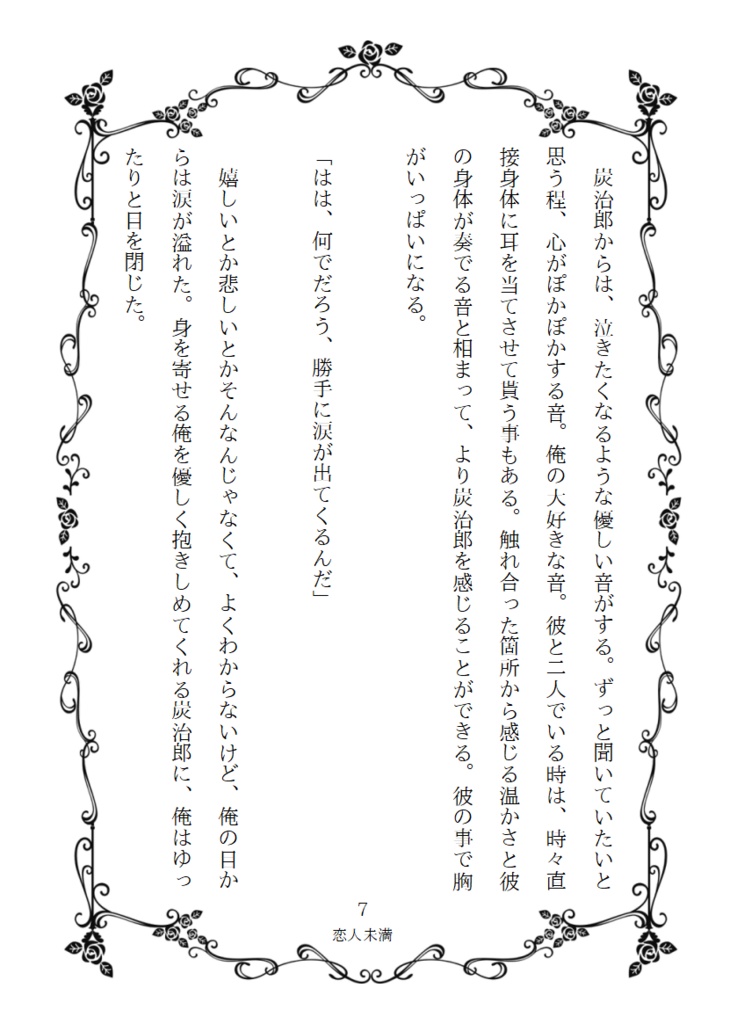 炭治郎からは、泣きたくなるような優しい音がする。ずっと聞いていたいと
思う程、心がぽかぽかする音。俺の大好きな音。彼と二人でいる時は、時々直
接身体に耳を当てさせて貰う事もある。触れ合った箇所から感じる温かさと彼
の身体が奏でる音と相まって、より炭治郎を感じることができる。彼の事で胸
がいっぱいになる。
「はは、何でだろう、勝手に涙が出てくるんだ」
嬉しいとか悲しいとかそんなんじゃなくて、よくわからないけど、俺の目か
らは涙が溢れた。身を寄せる俺を優しく抱きしめてくれる炭治郎に、俺はゆっ
たりと目を閉じた。
7
恋人未満